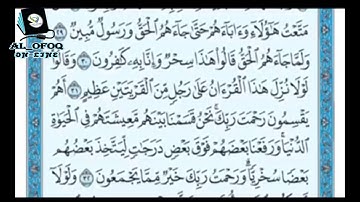 AL_OFOQ
ON LINE
مَتَّعْتُ هَٰٓؤُلَآءِ وَءَابَآءَهُمْ حَتَّىٰ جَآءَهُمُ ٱلْحَقُّ وَرَسُولٌ مُّبِينٌ ٢٩
وَلَمَّا جَآءَهُمُ ٱلْحَقُّ قَالُوا۟ هَٰذَا سِحْرٌ وَإِنَّا بِهِۦ كَٰفِرُونَ ٣٠ وَقَالُوا۟
لَوْلَا نُزِّلَ هَٰذَا ٱلْقُرْءَانُ عَلَىٰ رَجُلٍ مِّنَ ٱلْقَرْيَتَيْنِ عَظِيمٍ ٣١ أَهُمْ
يَقْسِمُونَ رَحْمَتَ رَبِّكَ ۚ نَحْنُ قَسَمْنَا بَيْنَهُم مَّعِيشَتَهُمْ فِى ٱلْحَيَوٰةِ
ٱلدُّنْيَا ۚ وَرَفَعْنَا بَعْضَهُمْ فَوْقَ بَعْضٍ دَرَجَٰتٍ لِّيَتَّخِذَ بَعْضُهُم
بَعْضًا سُخْرِيًّا ۗ وَرَحْمَتُ رَبِّكَ خَيْرٌ مِّمَّا يَجْمَعُونَ ٣٢ وَلَوْلَآ